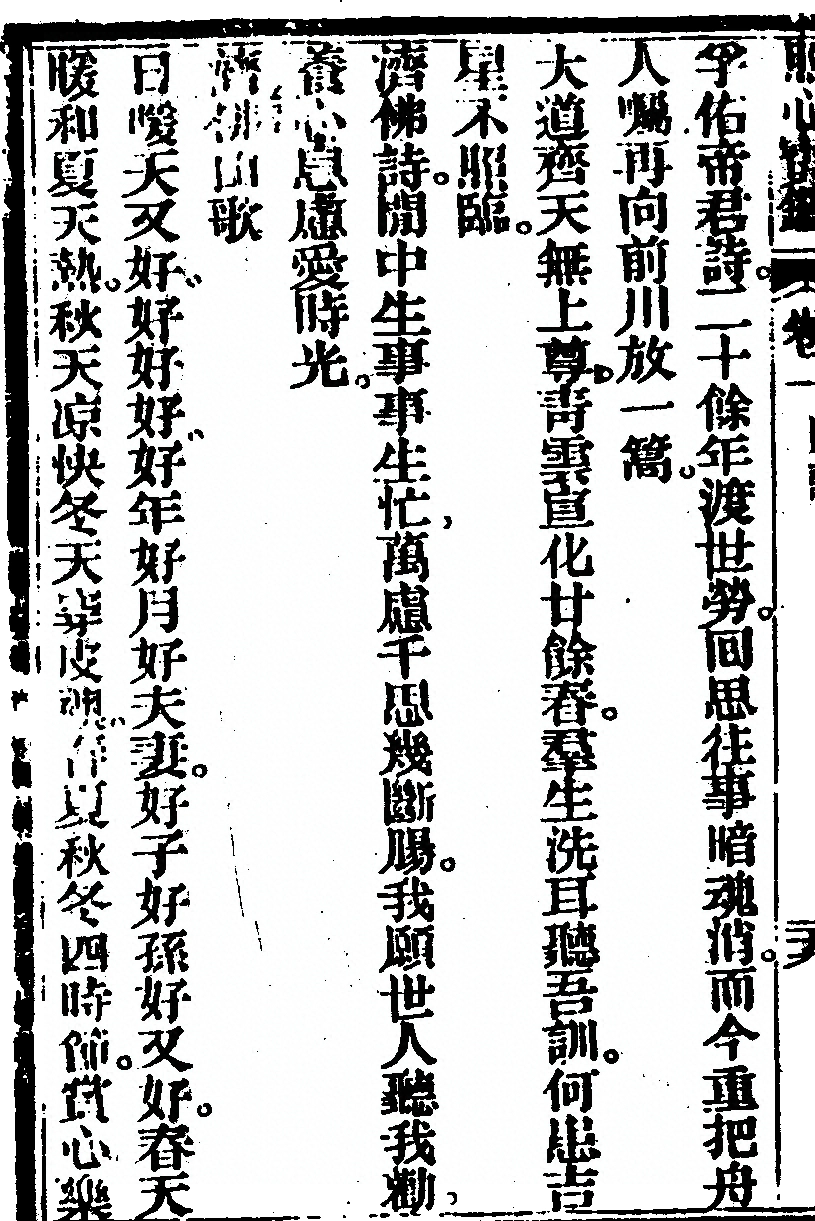 照心寶鑑 卷一
孚佑帝君詩。二十餘年渡世勞。回思往事暗魂消。而今重把舟
人囑再向前川放一篙。
大道齊天無上尊。靑雲宣化廿餘春。羣生洗耳聽吾訓。何患吉
星不照臨。
濟佛詩。閒中生事事生忙，萬慮千思幾斷腸。我願世人聽我勸，
養心息慮愛時光。
濟佛山歌
日暖天又好。好好好好年好月好夫妻。好子好孫好又好。春天
暖和夏天熱。秋天凉快冬天 皮 。春夏秋冬四時節。賞心樂